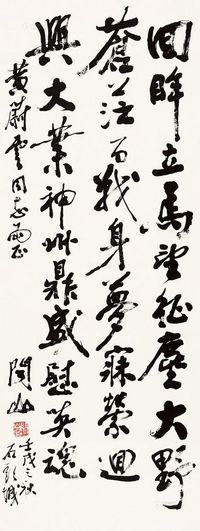 回眸立馬望征塵大野
蒼茫百戰身夢寐縈迴
興大業神州鼎盛慰英魂
黄蔚雲同志正
山
壬戌之秋
石頭城